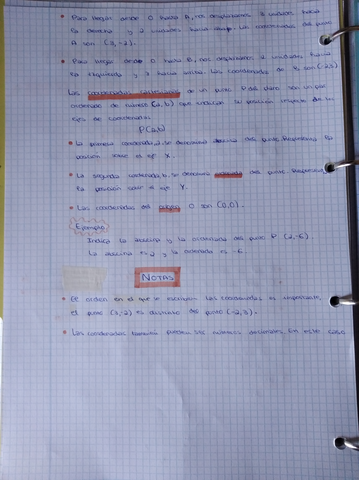 Para llegar desde O hasta A, nos desplazamos 3 unidades hacia
la derecha y 2 unidades hacia abajo. Las coordenadas del punto
A son (3,-2).
Para llegar desde O hasta B, nos desplazamos 2 unidades hacia
la izquierda y 3 hacia arriba. Las coordenadas de B son (-2,3)
Las coordenadas cartesianas de un punto P del plano son un par
ordenado de números (a,b) que indican su posición respecto de los
ejes de coordenadas
P(a,b)
La primera coordenada, a, se denomina abscisa del punto. Representa la
posición sobre el eje X.
La segunda coordenada, b, se denomina ordenada del punto. Representa
la posición sobre el eje Y.
Las coordenadas del origen O son (0,0).
Ejemplo
Indica la abscisa y la ordenada del punto P (2,-6).
La abscisa es 2 y la ordenada es -6
NOTAS
El orden en el que se escriben las coordenadas es importante,
el punto (3,-2) es distinto del punto (-2,3).
Las coordenadas también pueden ser números decimales. En este caso